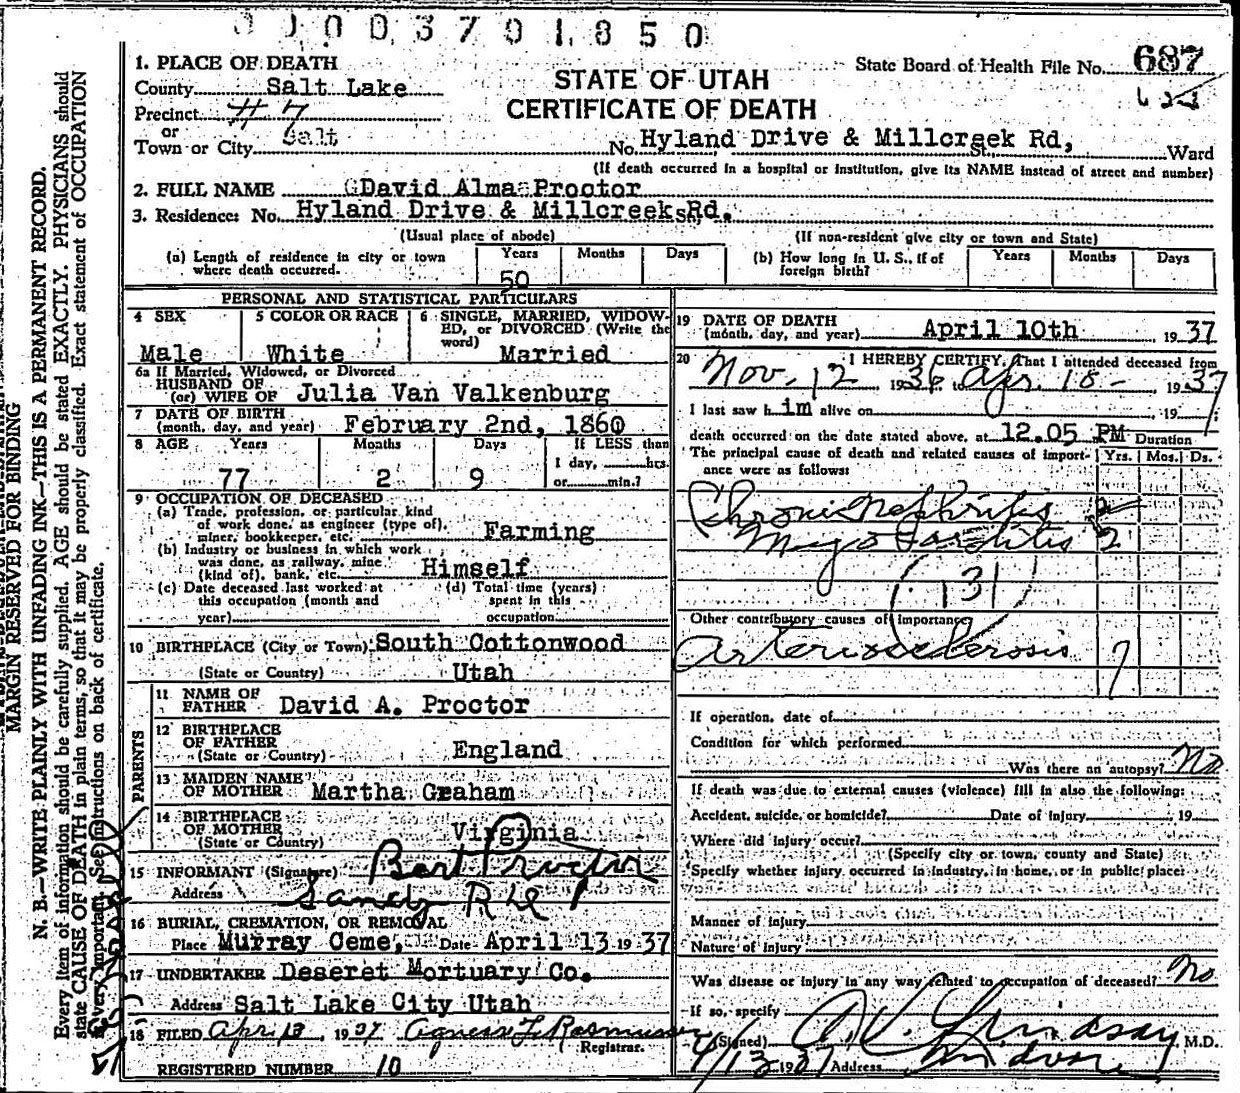 0003701850
1. PLACE OF DEATH
County Salt Lake
Precinct #7
or
Town or City Salt
STATE OF UTAH
CERTIFICATE OF DEATH
State Board of Health File No. 687
No. Hyland Drive & Millcreek Rd, St. Ward
(If death occurred in a hospital or institution, give its NAME instead of street and number)
2. FULL NAME David Alma Proctor
3. Residence: No. Hyland Drive & Millcreek St. Rd.
(Usual place of abode) (If non-resident give city or town and State)
(a) Length of residence in city or town where death occurred. Years 50 Months Days
(b) How long in U. S., if of foreign birth? Years Months Days
PERSONAL AND STATISTICAL PARTICULARS
4 SEX Male
5 COLOR OR RACE White
6 SINGLE, MARRIED, WIDOWED, or DIVORCED (Write the word) Married
6a If Married, Widowed, or Divorced
HUSBAND OF
(or) WIFE OF Julia Van Valkenburg
7 DATE OF BIRTH
(month, day, and year) February 2nd, 1860
8 AGE Years Months Days If LESS than
1 day, hrs.
77 2 9 or min.?
9 OCCUPATION OF DECEASED
(a) Trade, profession, or particular kind
of work done, as engineer (type of),
miner, bookkeeper, etc. Farming
(b) Industry or business in which work
was done, as railway, mine
(kind of), bank, etc. Himself
(c) Date deceased last worked at
this occupation (month and
year)
(d) Total time (years)
spent in this
occupation
10 BIRTHPLACE (City or Town) South Cottonwood
(State or Country) Utah
PARENTS
11 NAME OF
FATHER David A. Proctor
12 BIRTHPLACE
OF FATHER
(State or Country) England
13 MAIDEN NAME
OF MOTHER Martha Graham
14 BIRTHPLACE
OF MOTHER
(State or Country) Virginia
15 INFORMANT (Signature) Bert Proctor
Address Sandy
16 BURIAL, CREMATION, OR REMOVAL
Place Murray Ceme, Date April 13 1937
17 UNDERTAKER Deseret Mortuary Co.
Address Salt Lake City Utah
18 FILED Apr 13 1937 Agness L. Rasmussen
Registrar.
REGISTERED NUMBER 10
19 DATE OF DEATH
(month, day, and year) April 10th 1937
20 I HEREBY CERTIFY, That I attended deceased from
Nov. 12 1936 to Apr. 10 - 1937
I last saw him alive on 19 ;
death occurred on the date stated above, at 12.05 PM Duration
The principal cause of death and related causes of importance were as follows: Yrs. Mos. Ds.
Chronic Nephritis 2
Myocarditis 2
131
Other contributory causes of importance
Arteriosclerosis 7
If operation, date of
Condition for which performed
Was there an autopsy? No
If death was due to external causes (violence) fill in also the following:
Accident, suicide, or homicide? Date of injury , 19
Where did injury occur?
(Specify city or town, county and State)
Specify whether injury occurred in industry, in home, or in public place:
Manner of injury
Nature of injury
Was disease or injury in any way related to occupation of deceased? No
If so, specify
(Signed) A. V. Lindsay, M.D.
4/13 1937 Address
MARGIN RESERVED FOR BINDING
N. B.—WRITE PLAINLY WITH UNFADING INK—THIS IS A PERMANENT RECORD.
Every item of information should be carefully supplied. AGE should be stated EXACTLY. PHYSICIANS should
state CAUSE OF DEATH in plain terms, so that it may be properly classified. Exact statement of OCCUPATION
is very important. See instructions on back of certificate.